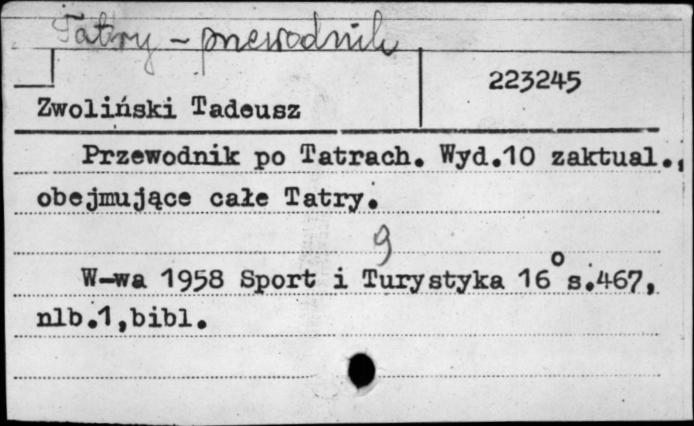 Tatry - przewodnik
223245
Zwoliński Tadeusz
Przewodnik po Tatrach. Wyd.10 zaktual.,
obejmujące całe Tatry.
9
W-wa 1958 Sport i Turystyka 16° s.467,
nlb.1,bibl.